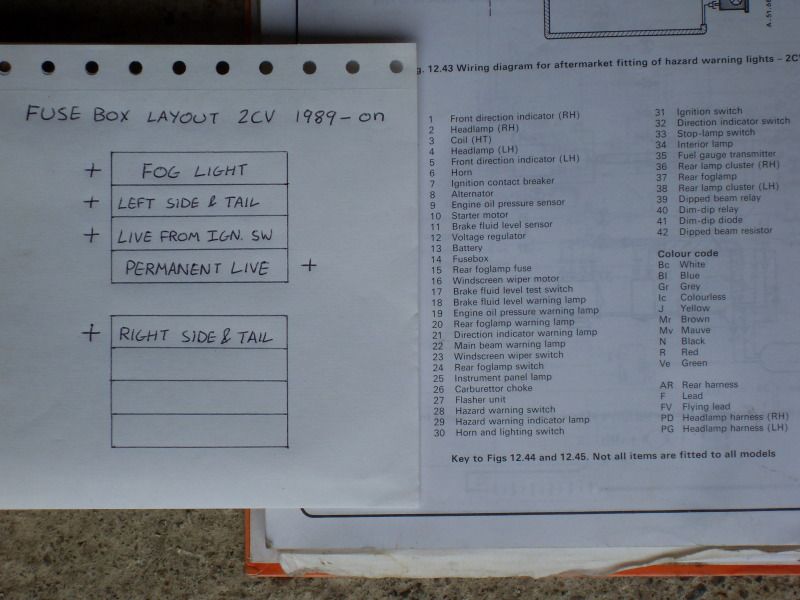 FUSE BOX LAYOUT 2CV 1989 - on
+ FOG LIGHT
+ LEFT SIDE & TAIL
+ LIVE FROM IGN. SW
PERMANENT LIVE +
+ RIGHT SIDE & TAIL
12.43 Wiring diagram for aftermarket fitting of hazard warning lights – 2CV
1 Front direction indicator (RH)
2 Headlamp (RH)
3 Coil (HT)
4 Headlamp (LH)
5 Front direction indicator (LH)
6 Horn
7 Ignition contact breaker
8 Alternator
9 Engine oil pressure sensor
10 Starter motor
11 Brake fluid level sensor
12 Voltage regulator
13 Battery
14 Fusebox
15 Rear foglamp fuse
16 Windscreen wiper motor
17 Brake fluid level test switch
18 Brake fluid level warning lamp
19 Engine oil pressure warning lamp
20 Rear foglamp warning lamp
21 Direction indicator warning lamp
22 Main beam warning lamp
23 Windscreen wiper switch
24 Rear foglamp switch
25 Instrument panel lamp
26 Carburettor choke
27 Flasher unit
28 Hazard warning switch
29 Hazard warning indicator lamp
30 Horn and lighting switch
31 Ignition switch
32 Direction indicator switch
33 Stop-lamp switch
34 Interior lamp
35 Fuel gauge transmitter
36 Rear lamp cluster (RH)
37 Rear foglamp
38 Rear lamp cluster (LH)
39 Dipped beam relay
40 Dim-dip relay
41 Dim-dip diode
42 Dipped beam resistor
Colour code
Bc White
Bl Blue
Gr Grey
Ic Colourless
J Yellow
Mr Brown
Mv Mauve
N Black
R Red
Ve Green
AR Rear harness
F Lead
FV Flying lead
PD Headlamp harness (RH)
PG Headlamp harness (LH)
Key to Figs 12.44 and 12.45. Not all items are fitted to all models